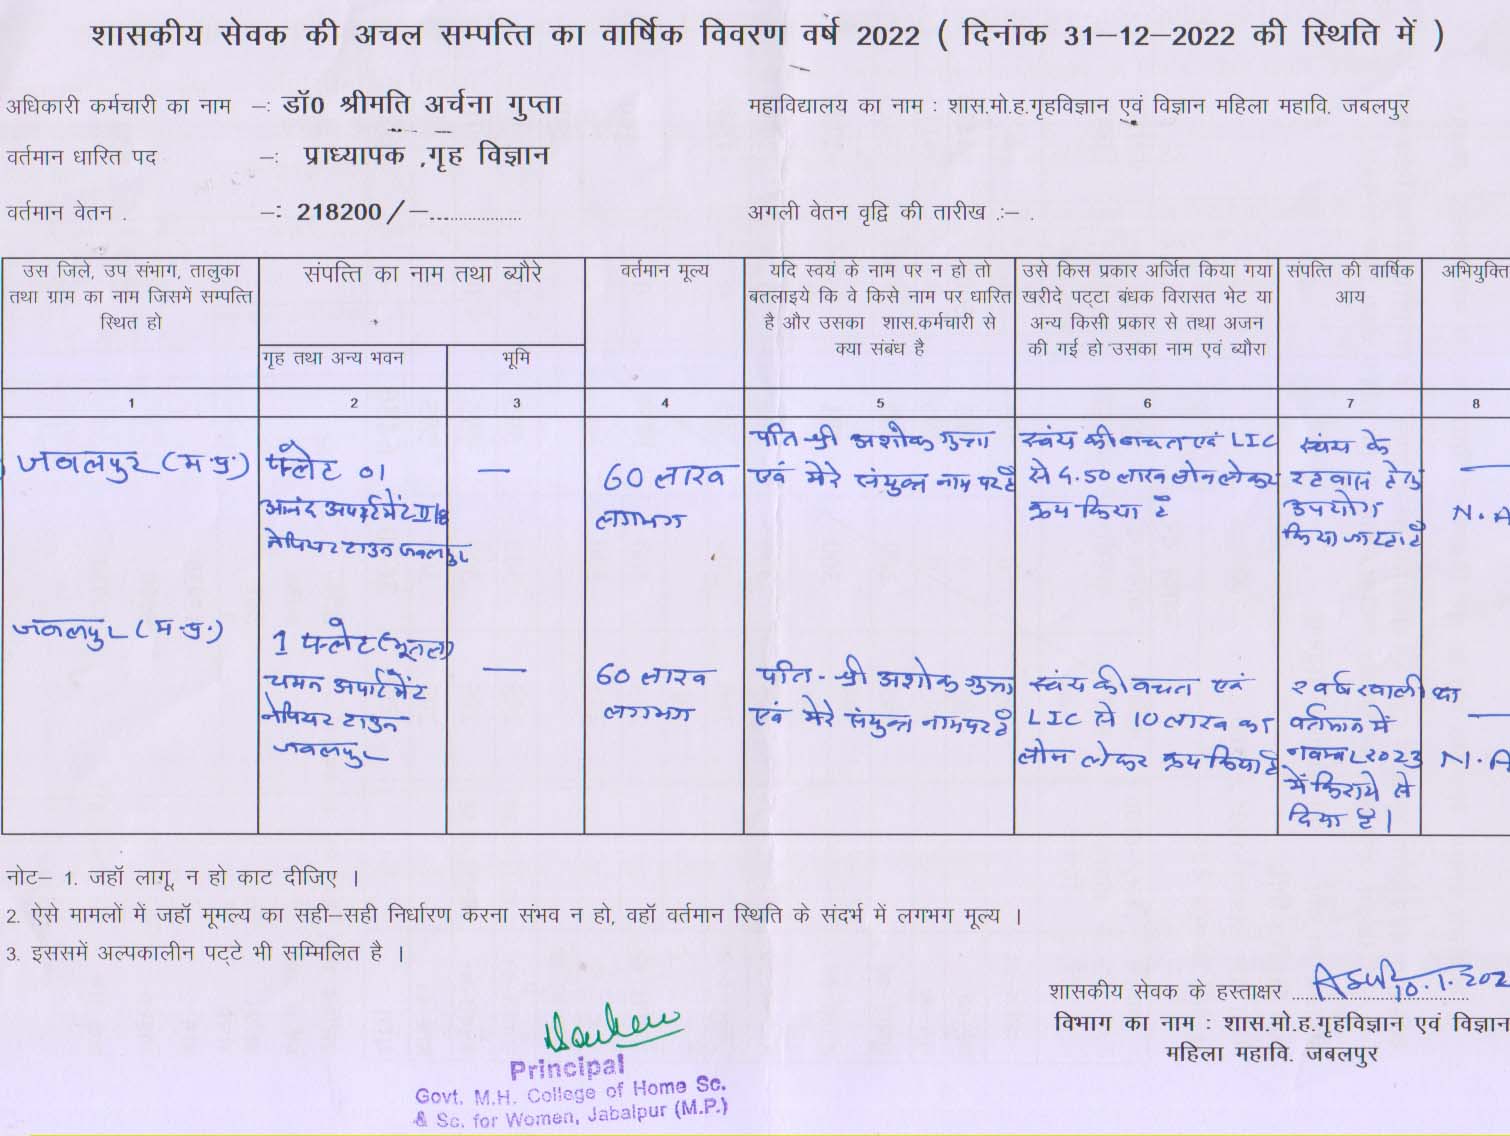 शासकीय सेवक की अचल सम्पत्ति का वार्षिक विवरण वर्ष 2022 ( दिनांक 31–12–2022 की स्थिति में )
अधिकारी कर्मचारी का नाम –: डॉ0 श्रीमति अर्चना गुप्ता महाविद्यालय का नाम : शास.मो.ह.गृहविज्ञान एवं विज्ञान महिला महावि. जबलपुर
वर्तमान धारित पद –: प्राध्यापक ,गृह विज्ञान
वर्तमान वेतन . –: 218200 / –..................... अगली वेतन वृद्वि की तारीख :– .
उस जिले, उप संभाग, तालुका
तथा ग्राम का नाम जिसमें सम्पत्ति
स्थित हो
संपत्ति का नाम तथा ब्यौरे
गृह तथा अन्य भवन
भूमि
वर्तमान मूल्य
यदि स्वयं के नाम पर न हो तो
बतलाइये कि वे किसे नाम पर धारित
है और उसका शास.कर्मचारी से
क्या संबंध है
उसे किस प्रकार अर्जित किया गया
खरीदे पट्टा बंधक विरासत भेट या
अन्य किसी प्रकार से तथा अजन
की गई हो उसका नाम एवं ब्यौरा
संपत्ति की वार्षिक
आय
अभियुक्ति
1 2 3 4 5 6 7 8
जबलपुर (म.प्र.)
फ्लेट 01
आनंद अपार्टमेंट II/8
नेपियर टाउन जबलपुर
—
60 लाख
लगभग
पति श्री अशोक गुप्ता
एवं मेरे संयुक्त नाम पर है
स्वंय की बचत एवं LIC
से 4.50 लाख लोन लेकर
क्रय किया है
स्वंय के
रहवास हेतु
उपयोग
किया जा रहा है
—
N.A
जबलपुर (म.प्र.)
1 फ्लेट (भूतल)
चमन अपार्टमेंट
नेपियर टाउन
जबलपुर
—
60 लाख
लगभग
पति - श्री अशोक गुप्ता
एवं मेरे संयुक्त नाम पर है
स्वंय की बचत एवं
LIC से 10 लाख का
लोन लेकर क्रय किया है
2 वर्ष खाली था
वर्तमान में
नवम्बर 2023
में किराये से
दिया है।
—
N.A
नोट– 1. जहॉ लागू, न हो काट दीजिए ।
2. ऐसे मामलों में जहॉ मूमल्य का सही–सही निर्धारण करना संभव न हो, वहॉ वर्तमान स्थिति के संदर्भ में लगभग मूल्य ।
3. इससमें अल्पकालीन पट्टे भी सम्मिलित है ।
शासकीय सेवक के हस्ताक्षर .............................. 10.1.202
विभाग का नाम : शास.मो.ह.गृहविज्ञान एवं विज्ञान
महिला महावि. जबलपुर
Principal
Govt. M.H. College of Home Sc.
& Sc. for Women, Jabalpur (M.P.)